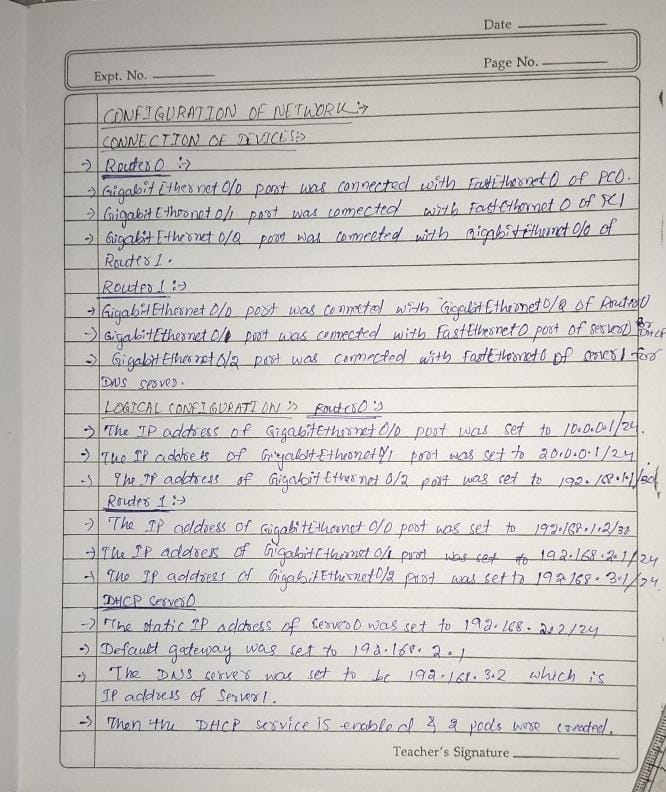 Date
Page No.
Expt. No.
CONFIGURATION OF NETWORK :→
CONNECTION OF DEVICES :→
→ Router 0 :→
→ Gigabit Ethernet 0/0 port was connected with FastEthernet 0 of PC0.
→ Gigabit Ethernet 0/1 port was connected with FastEthernet 0 of PC1
→ Gigabit Ethernet 0/2 port was connected with gigabit Ethernet 0/0 of
Router 1.
Router 1 :→
→ GigabitEthernet 0/0 port was connected with GigabitEthernet 0/2 of Router0
→ GigabitEthernet 0/1 port was connected with FastEthernet 0 port of server0 for DHCP
→ GigabitEthernet 0/2 port was connected with FastEthernet 0 of server 1 for
DNS server.
LOGICAL CONFIGURATION :→ Router0 :→
→ The IP address of GigabitEthernet 0/0 port was set to 10.0.0.1/24.
→ The IP address of GigabitEthernet 0/1 port was set to 20.0.0.1/24
→ The IP address of Gigabit Ethernet 0/2 port was set to 192.168.1.1/30
Router 1 :→
→ The IP address of GigabitEthernet 0/0 port was set to 192.168.1.2/30
→ The IP address of GigabitEthernet 0/1 port was set to 192.168.2.1/24
→ The IP address of GigabitEthernet 0/2 port was set to 192.168.3.1/24.
DHCP Server0
→ The static IP address of server0 was set to 192.168.2.2/24
→ Default gateway was set to 192.168.2.1
→ The DNS server was set to be 192.168.3.2 which is
IP address of Server1.
→ Then the DHCP service is enabled & 2 pools were created.
Teacher's Signature